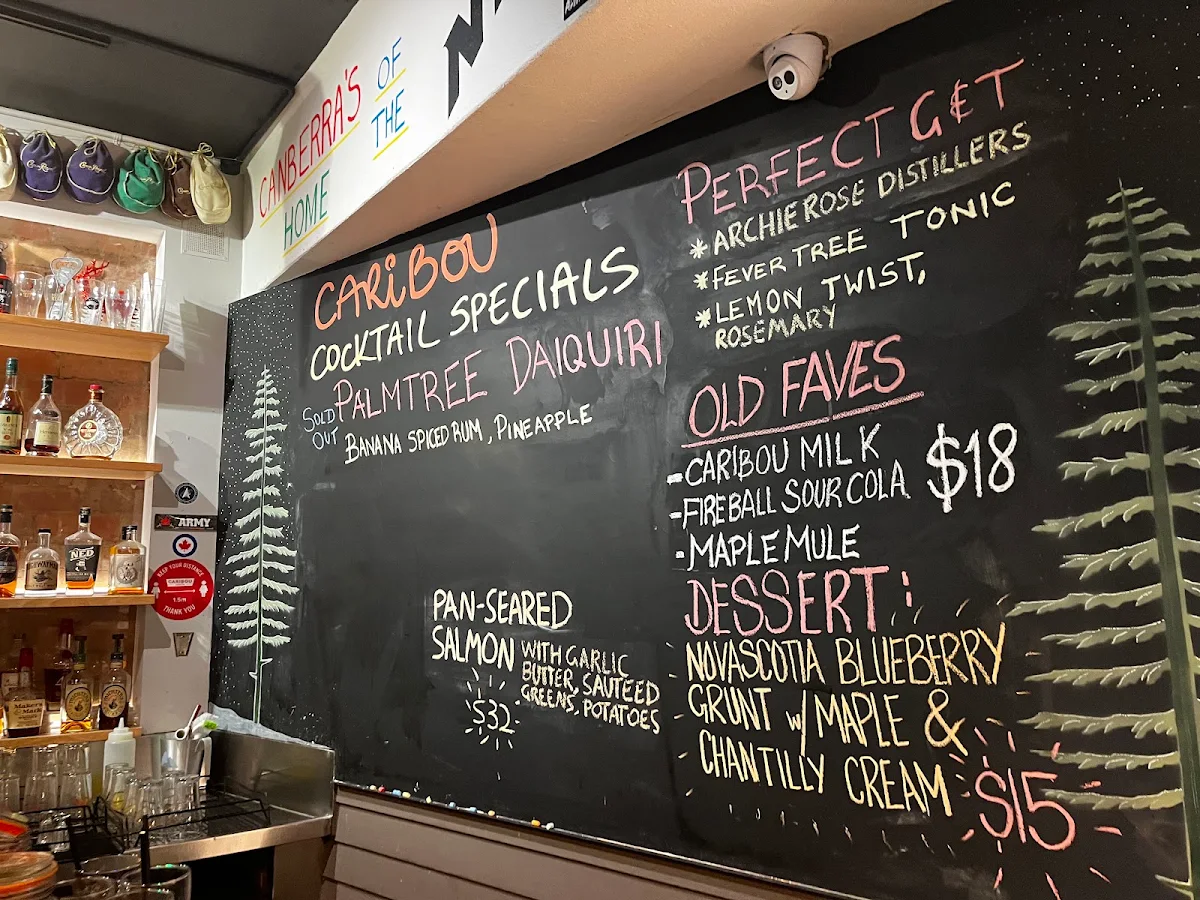 CANBERRA'S
HOME
OF
THE
CARIBOU
COCKTAIL SPECIALS
SOLD
OUT
PALMTREE DAIQUIRI
BANANA SPICED RUM, PINEAPPLE
PAN-SEARED
SALMON
WITH GARLIC
BUTTER, SAUTEED
GREENS, POTATOES
$32
PERFECT GET
* ARCHIE ROSE DISTILLERS
* FEVER TREE TONIC
* LEMON TWIST,
ROSEMARY
OLD FAVES
- CARIBOU MILK
- FIREBALL SOUR COLA
- MAPLE MULE
$18
DESSERT:
NOVASCOTIA BLUEBERRY
GRUNT w/ MAPLE &
CHANTILLY CREAM
$15
Crown Royal
Crown Royal
ARMY
KEEP YOUR DISTANCE
CARIBOU
1.5m
THANK YOU
NED
Maker's
Mark